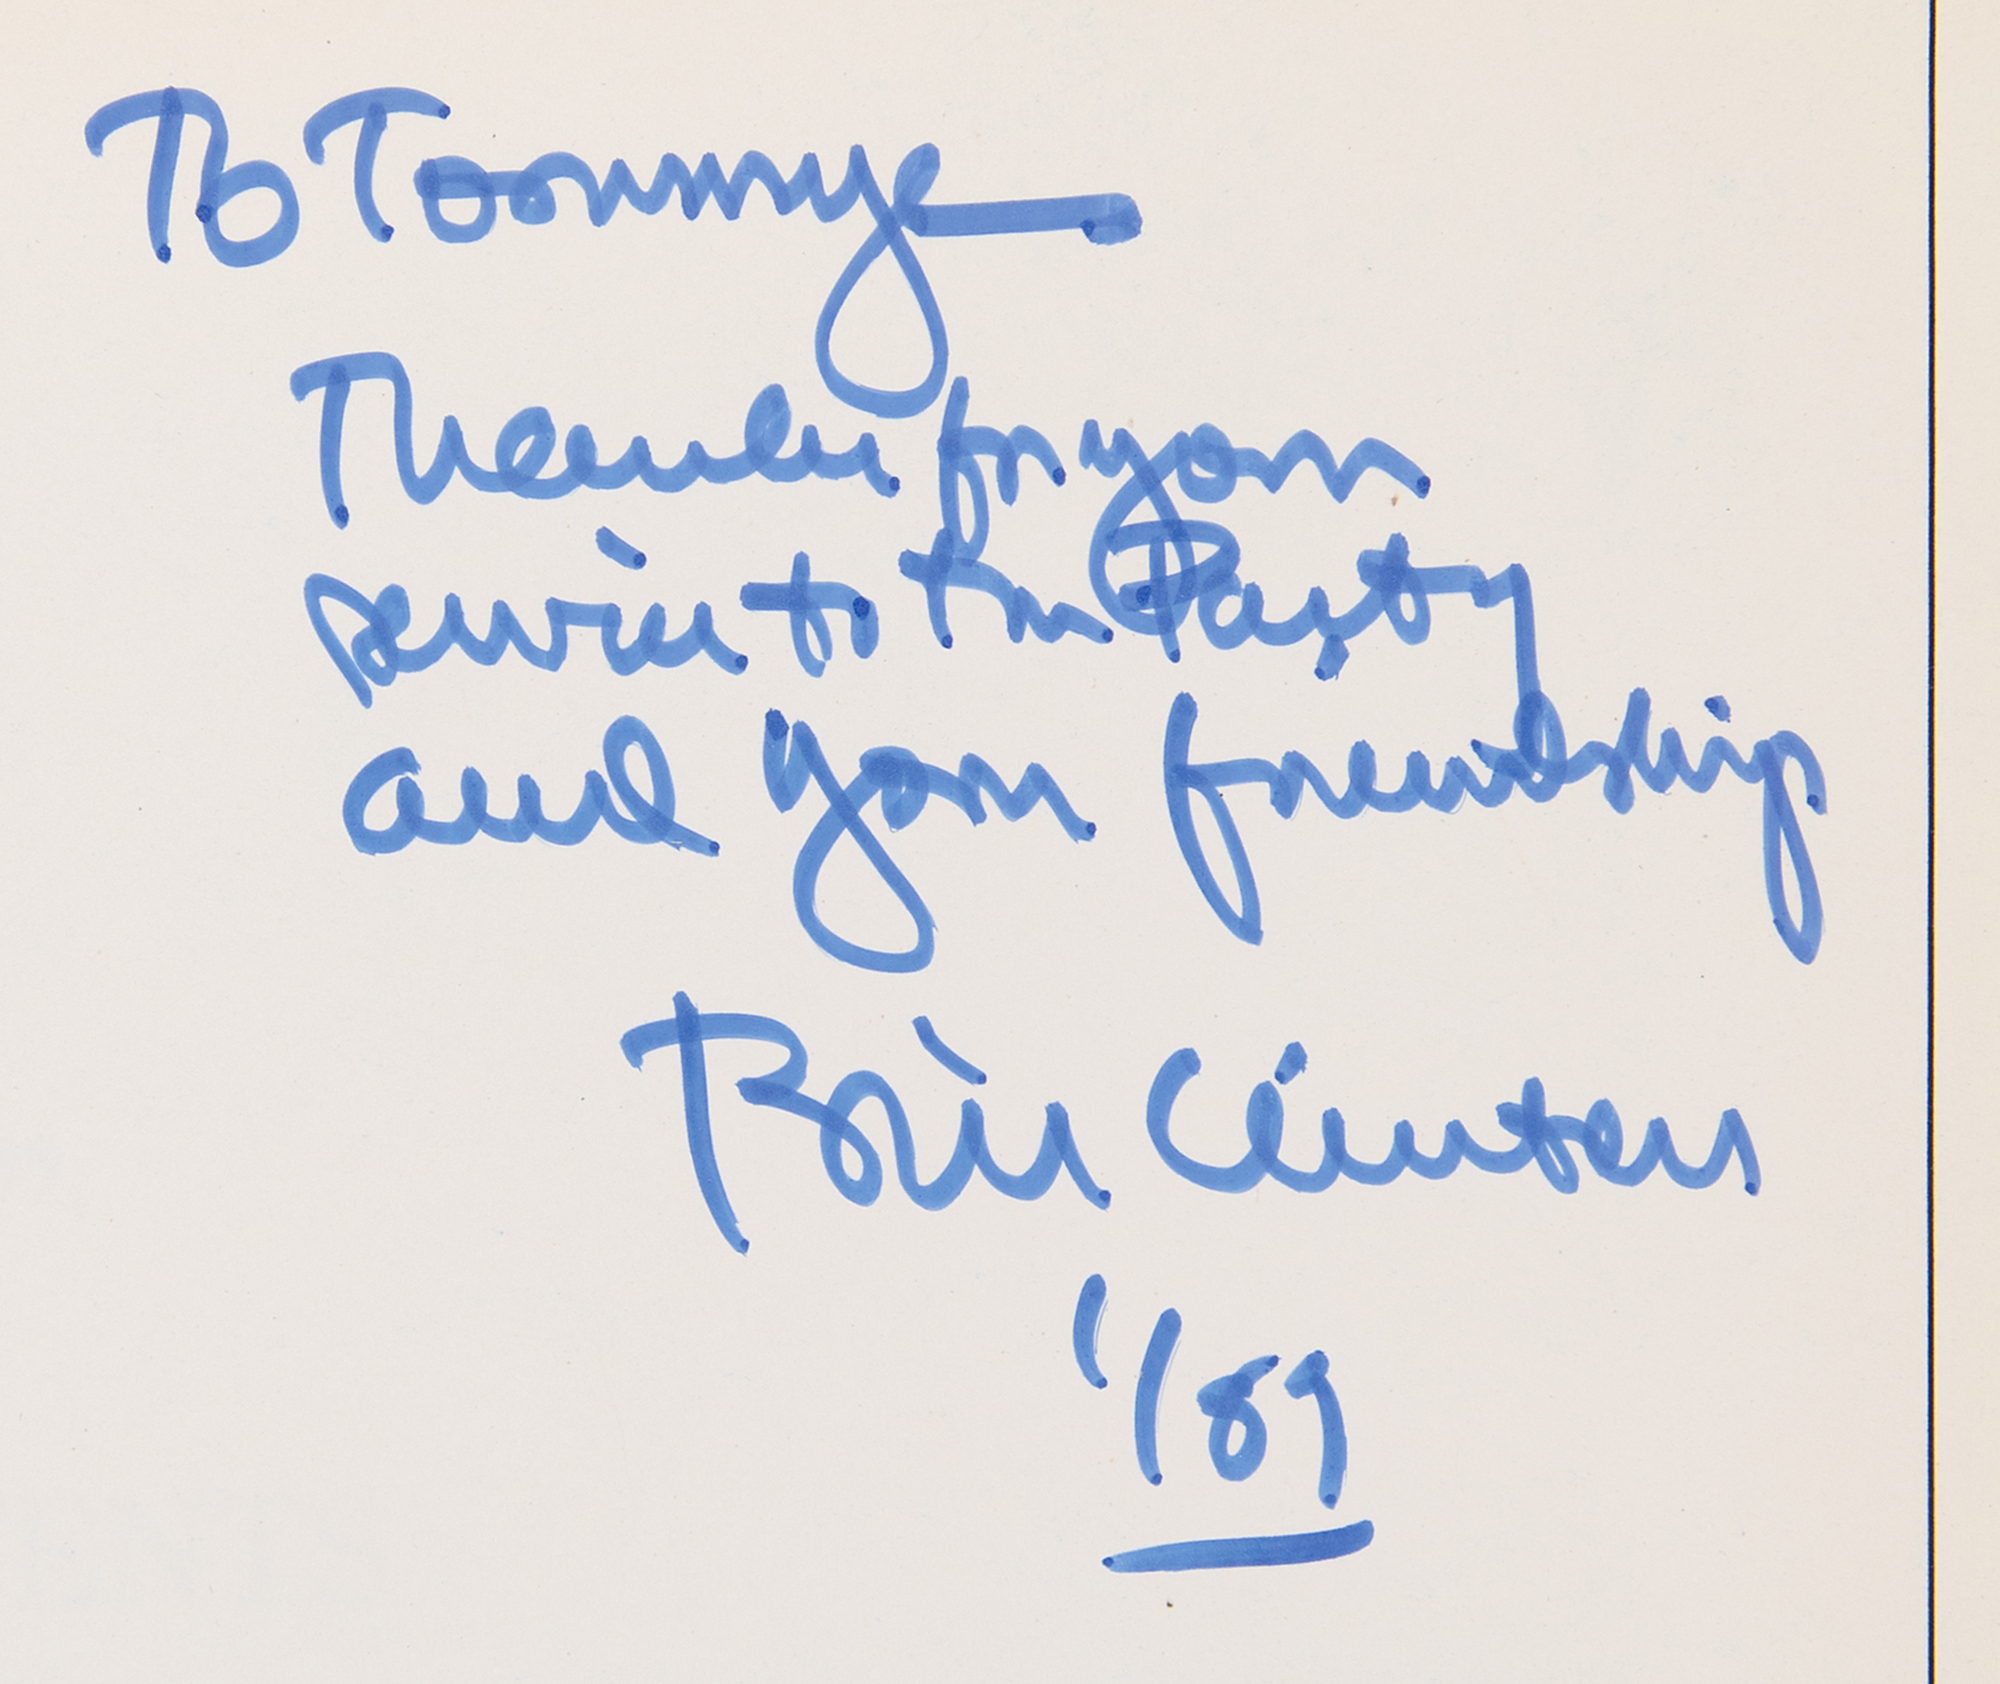 To Tommye —
Thanks for your
service to the Party
and your friendship
Bill Clinton
1/89